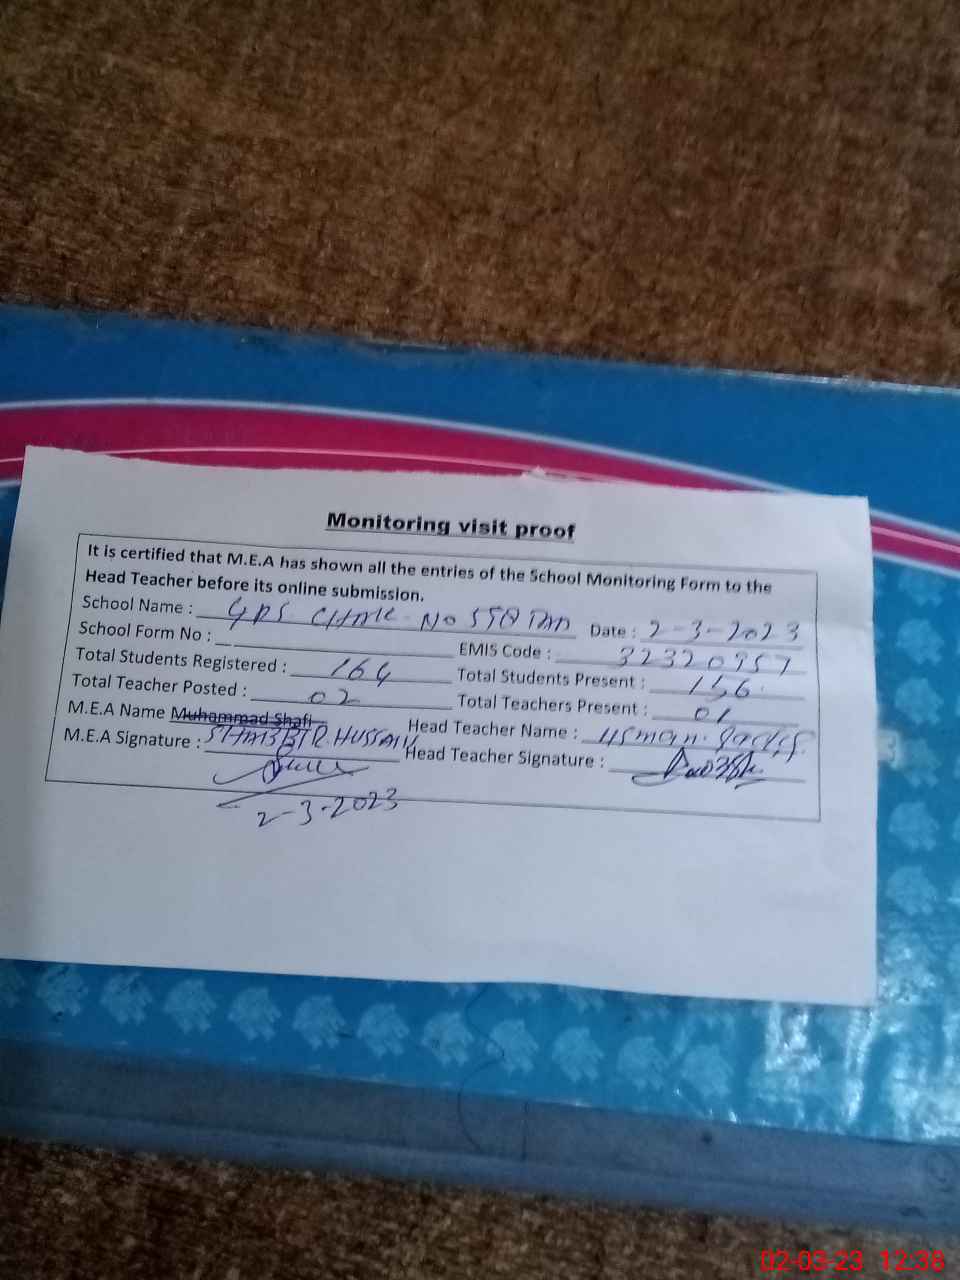 Monitoring visit proof
It is certified that M.E.A has shown all the entries of the School Monitoring Form to the
Head Teacher before its online submission.
School Name : GPS. CHAK. No Date : 2-3-2023
School Form No : EMIS Code : 32320957
Total Students Registered : 164 Total Students Present : 156
Total Teacher Posted : 02 Total Teachers Present : 01
M.E.A Name Muhammad Shafi Head Teacher Name : Usman
SHABBIR. HUSSAIN
M.E.A Signature : Head Teacher Signature :
2-3-2023
02-03-23 12:38